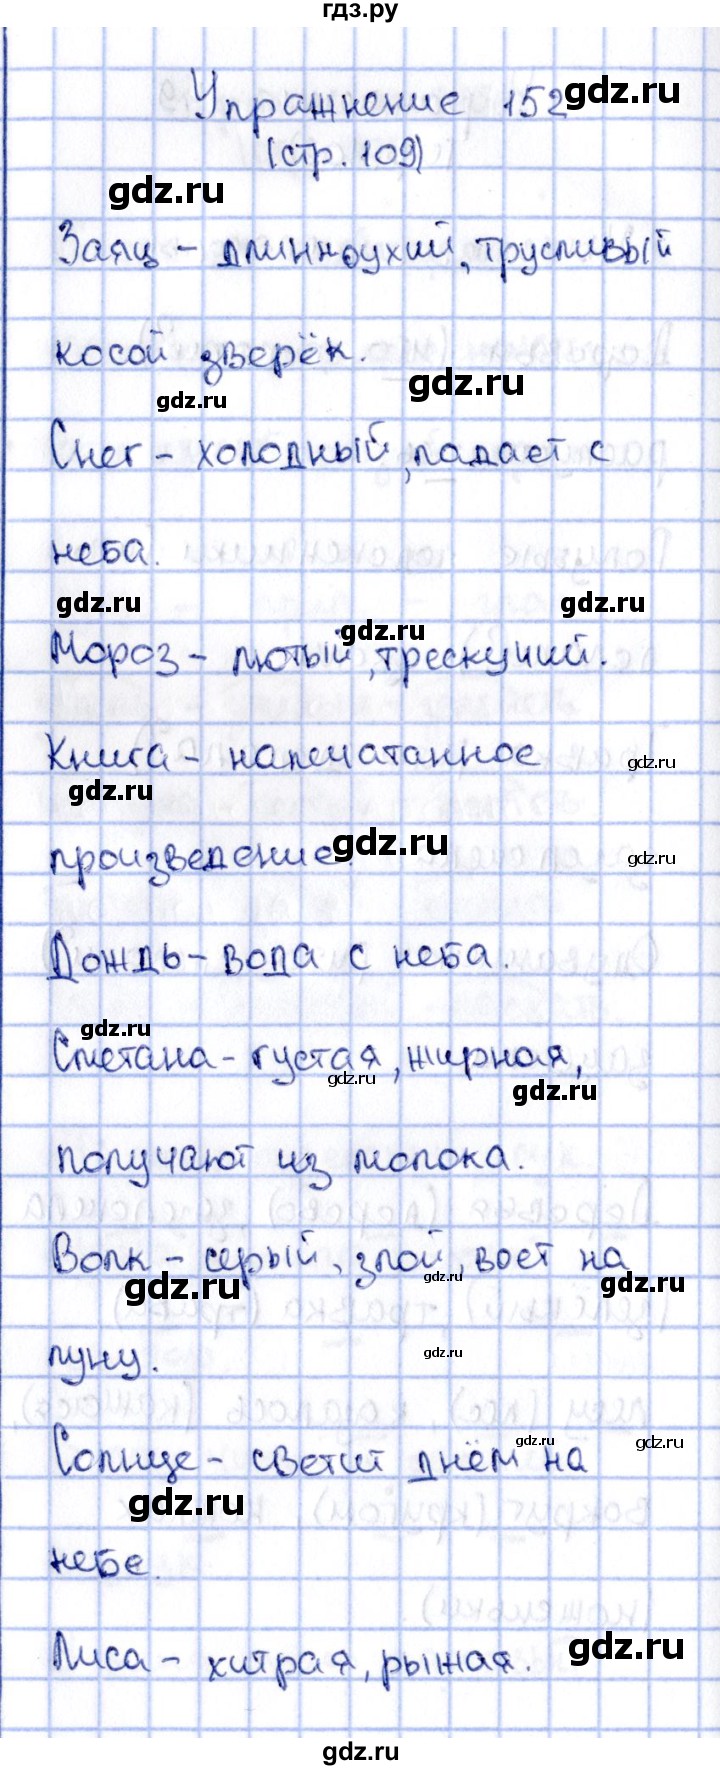 гдз.ру
Упражнение 152
gdz.ru
(стр. 109)
gdz.ru
Заяц - длинноухий, трусливый
косой зверёк.
gdz.ru
gdz.ru
Снег - холодный, падает с
неба.
gdz.ru
gdz.ru
gdz.ru
Мороз - лютый, трескучий.
Книга - напечатанное
gdz.ru
gdz.ru
произведение.
gdz.ru
gdz.ru
Дождь - вода с неба.
gdz.ru
Сметана - густая, жирная,
gdz.ru
gdz.ru
получают из молока.
Волк - серый, злой, воет на
gdz.ru
gdz.ru
gdz.ru
луну.
gdz.ru
Солнце - светит днём на
gdz.ru
gdz.ru
gdz.ru
небе.
Лиса - хитрая, рыжая.
gdz.ru
gdz.ru